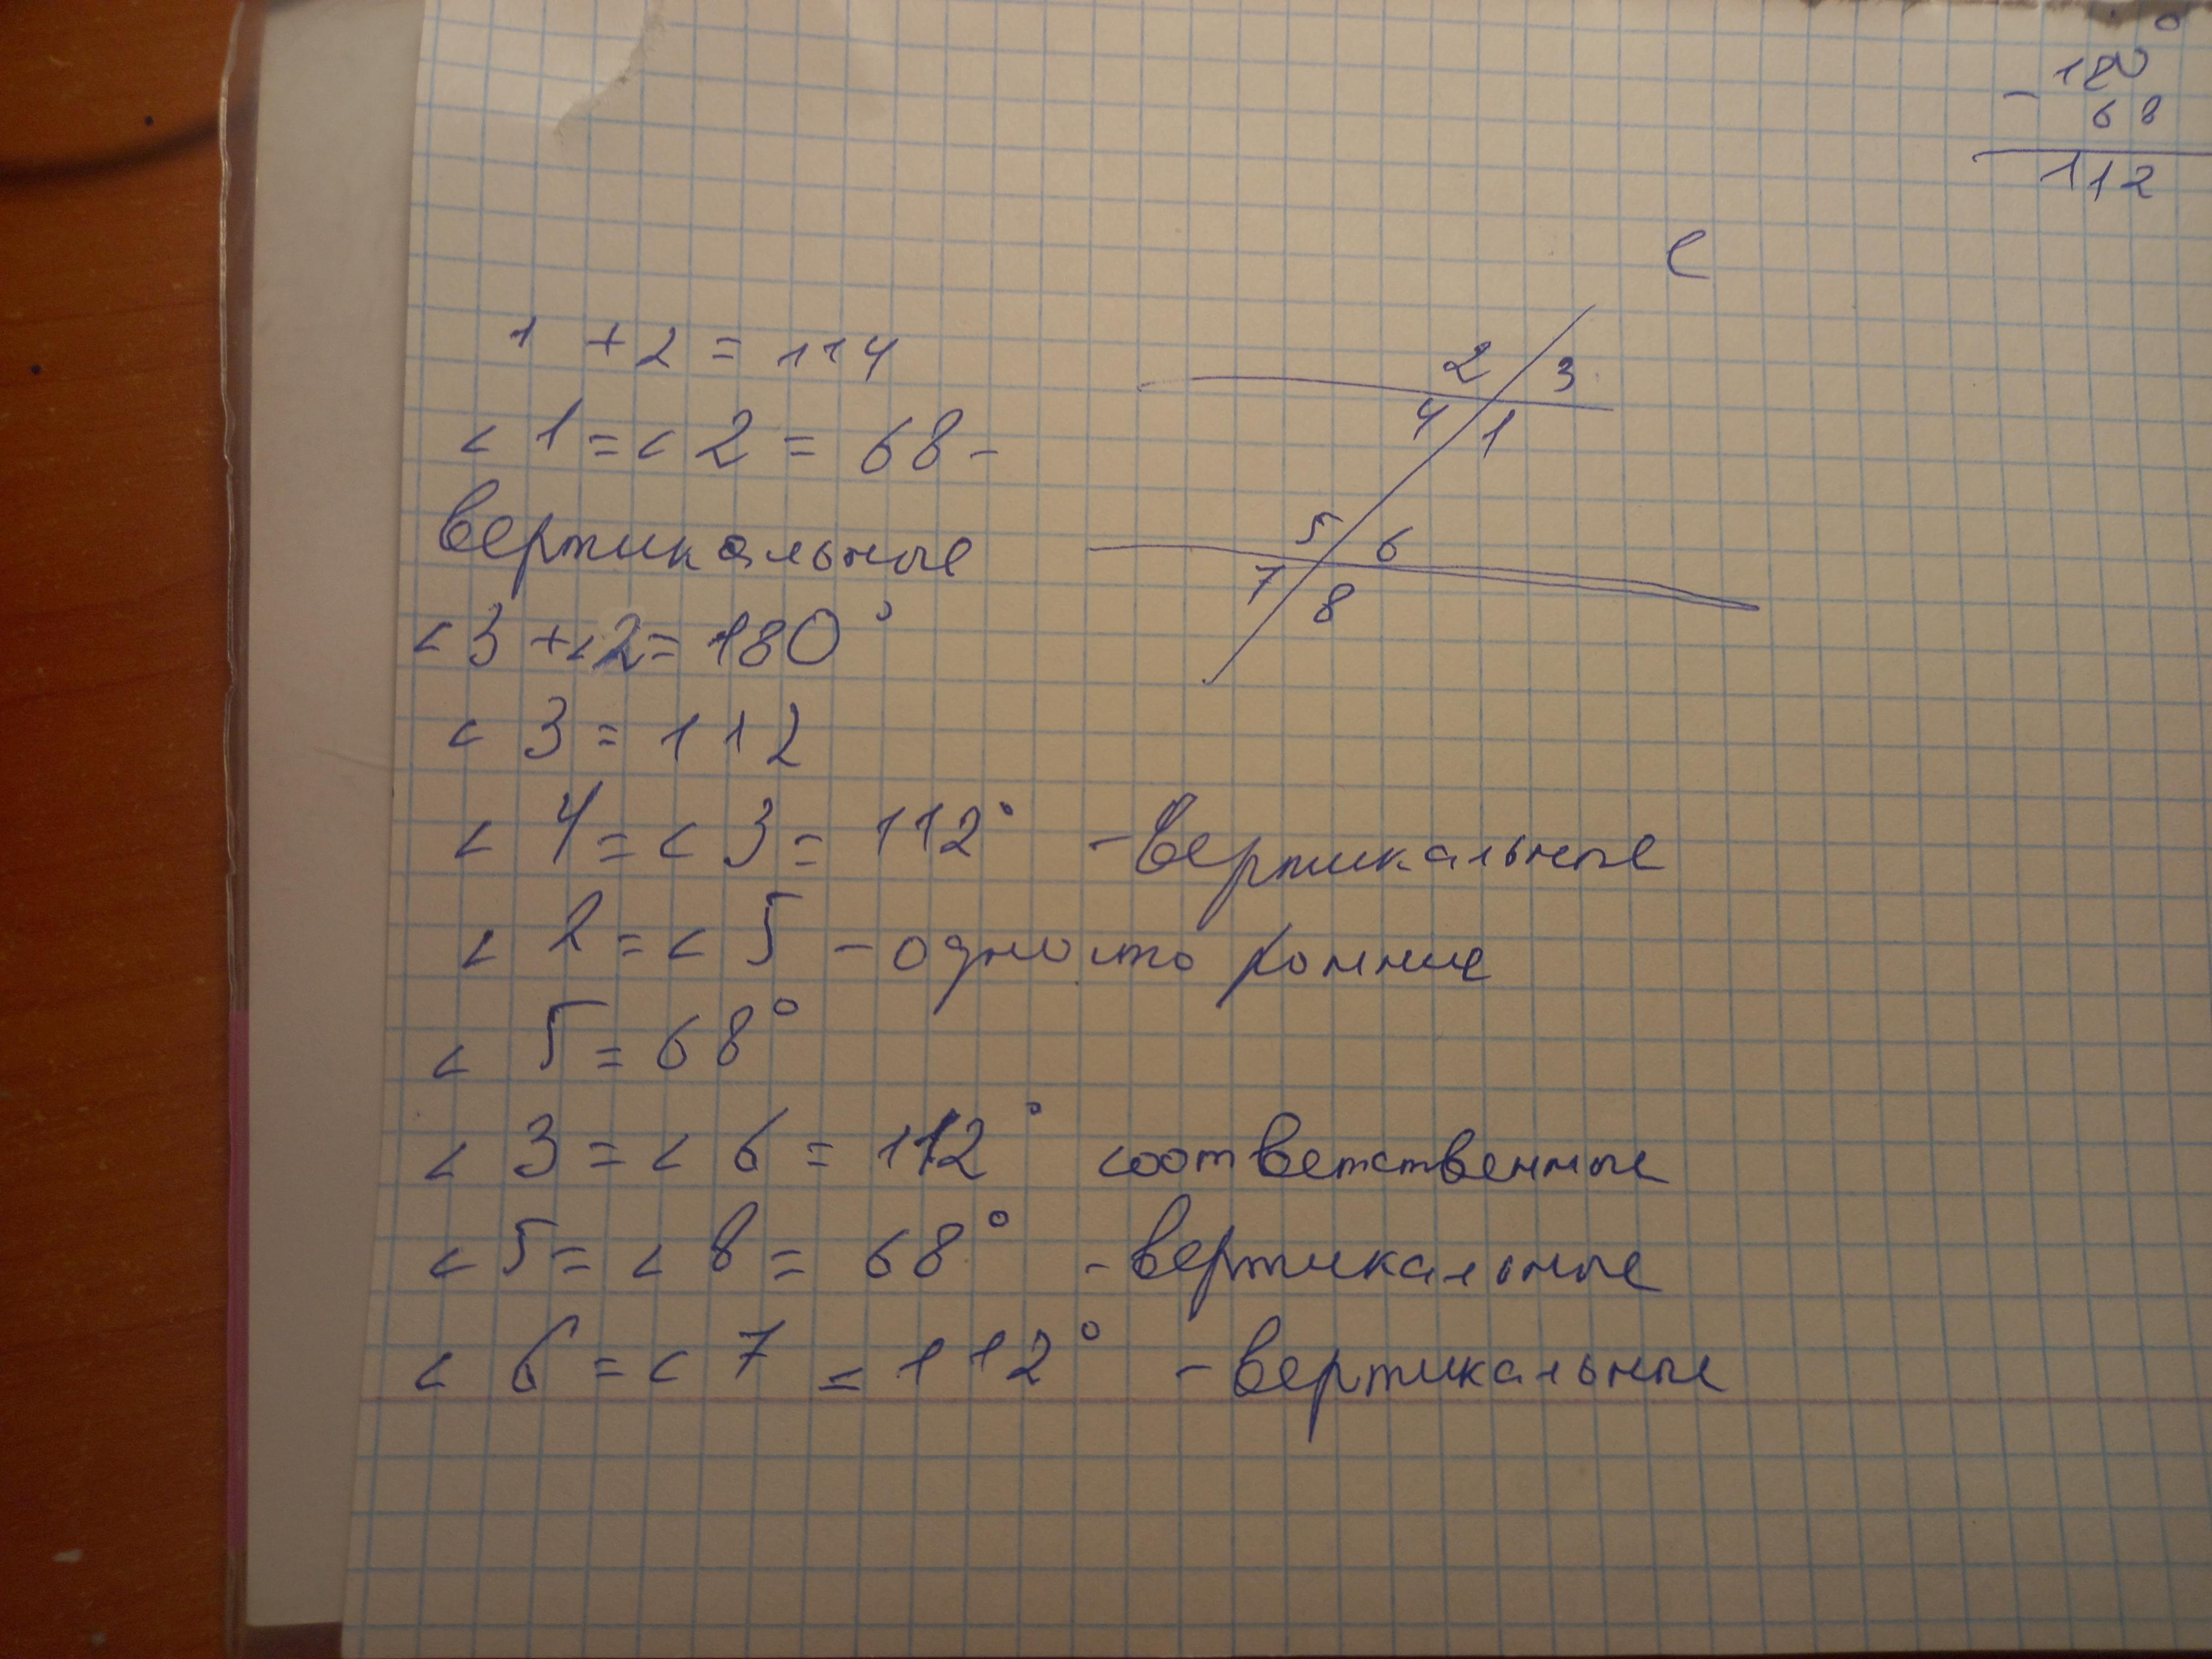 180
- 68
112
c
1 + 2 = 114
2 3
4 1
< 1 = < 2 = 68 -
вертикальные
5 6
7 8
< 3 + < 2 = 180°
< 3 = 112
< 4 = < 3 = 112° - вертикальные
< 2 = < 5 - односторонние
< 5 = 68°
< 3 = < 6 = 112° соответственные
< 5 = < 8 = 68° - вертикальные
< 6 = < 7 = 112° - вертикальные